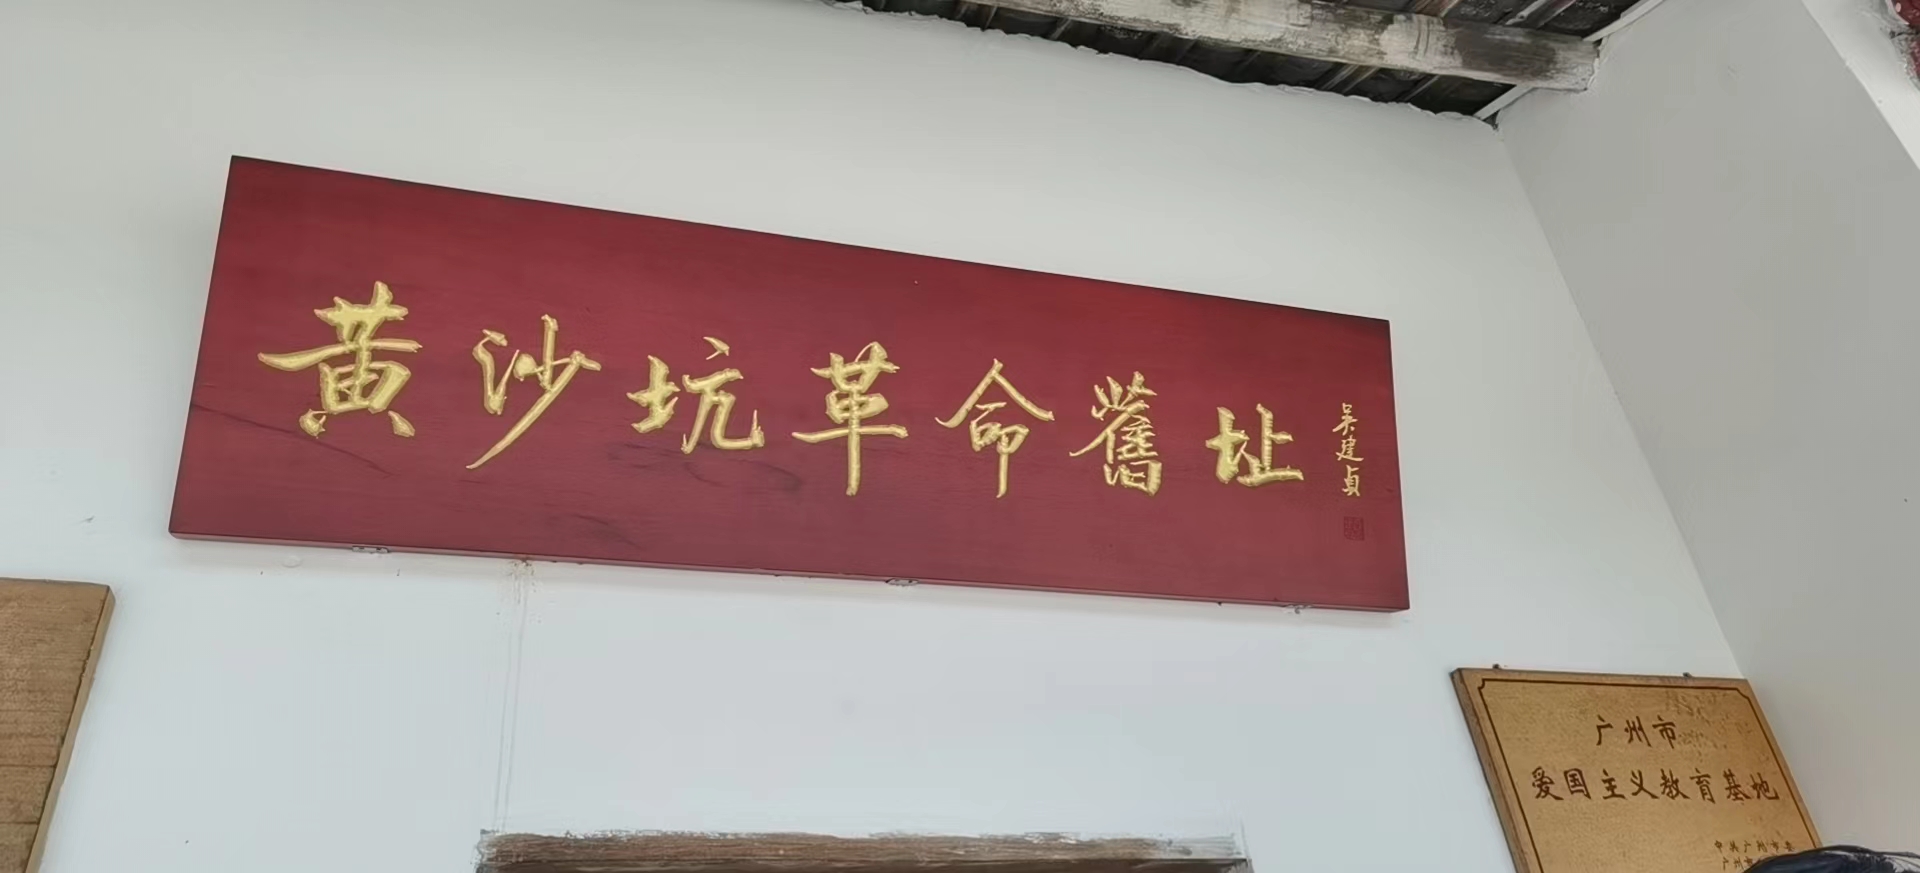 黄沙坑革命舊址
吴建贞
广州市
爱国主义教育基地
中共广州市委
广州市